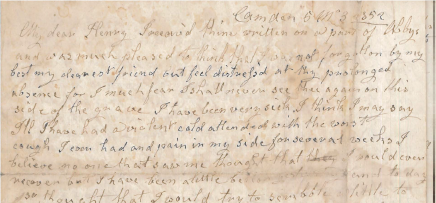 Camden 6 Mo 3 1852
My dear Henry I received thine written on a part of Abbys
and was much pleased to think that I was not forgotten by my
best my dearest friend but feel distress'd at thy prolonged
absence for I much fear I shall never see thee again on this
side of the grave I have been very sick I think I may say
Ill I have had a violent cold attended with the worst
cough I ever had and pain in my side for several weeks I
believe no one that saw me thought that I would ever
recover and I have been a little better and to day
thought that I would try to scribble a little to